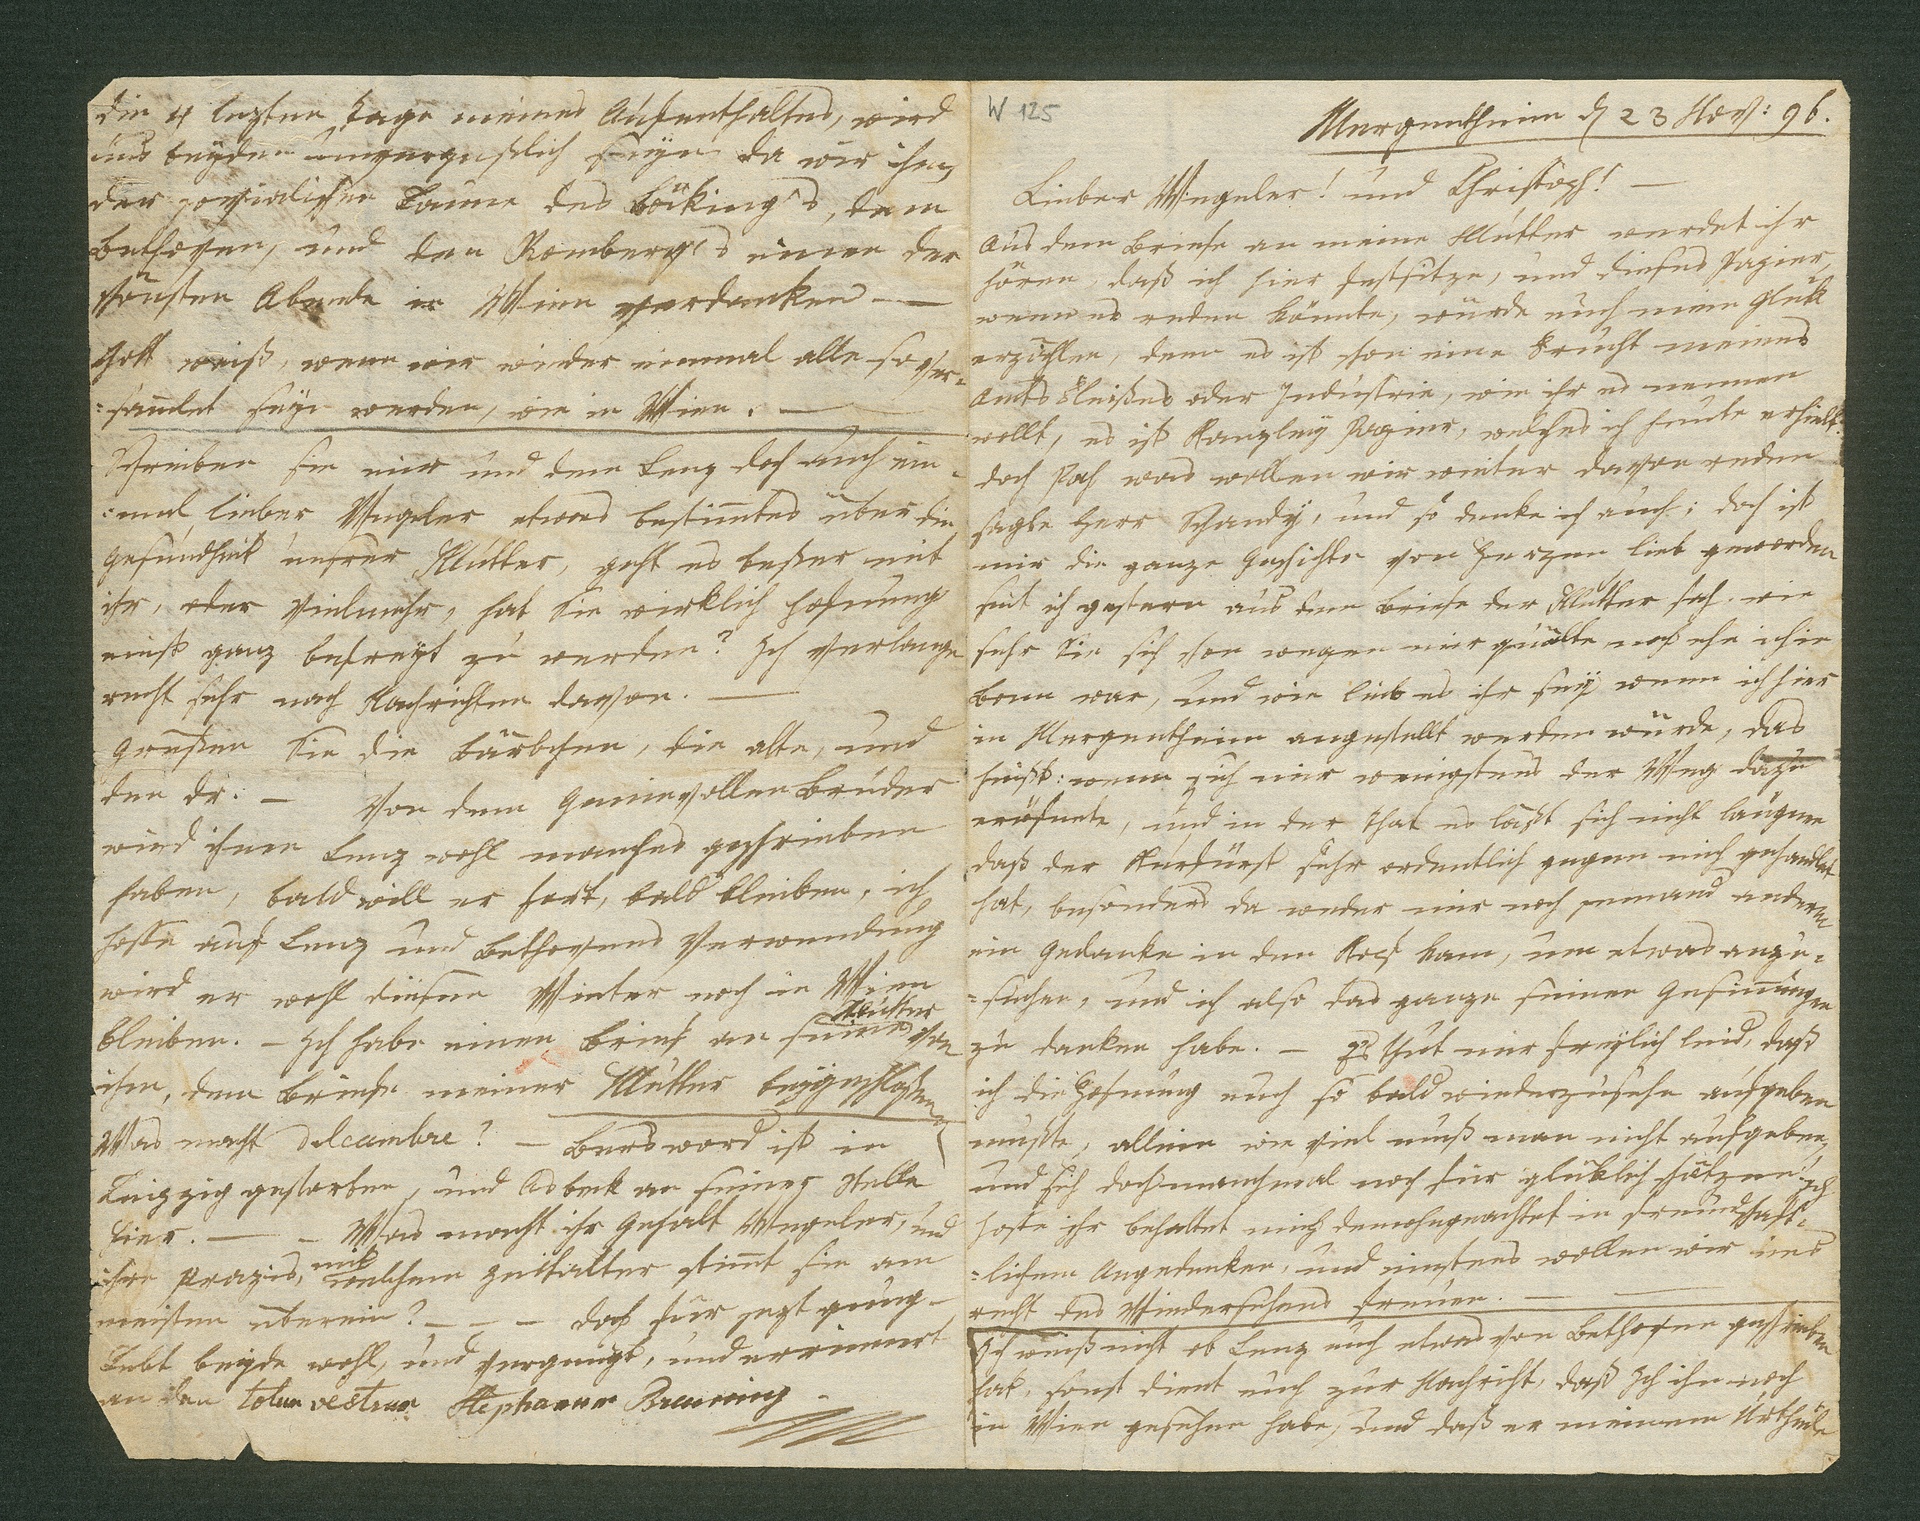 W 125
Mergentheim d 23 Nov: 96.
Lieber Wegeler! und Christoph! —
Aus dem Briefe an meine Mutter werdet ihr
hören, daß ich hier festsitze, und dieses Papier,
wenn es reden könnte, würde euch mein Glük
erzählen, denn es ist schon eine Frucht meines
Amts Fleißes oder Industrie, wie ihr es nennen
wollt, es ist Kanzley Papier, welches ich heute erhielt.
doch Pah was wollen wir weiter davon reden
sagte Herr Schandÿ, und so denke ich auch; doch ist
mir die ganze Geschichte von Herzen lieb geworden
seit ich gestern aus dem Briefe der Mutter sah. wie
sehr Sie sich schon wegen mir quälte noch ehe ich in
Bonn war, und wie lieb es ihr seÿ wenn ich hier
in Mergentheim angestellt werden würde, das
heißt: wenn sich mir wenigstens der Weg dazu
eröfnete, und in der That es läßt sich nicht läugnen
daß der Kurfürst sehr ordentlich gegen mich gehandlet
hat, besonders da weder mir noch jemand anderm
ein Gedanke in den Kopf kam, um etwas anzu-
=suchen, und ich also das ganze seinen Gesinnungen
zu danken habe. — Es thut mir freylich leid, daß
ich die Hofnung euch so bald wiederzusehn aufgeben
mußte, allein wie viel muß man nicht aufgeben,
und sich doch manchmal noch für glüklich schätzen! Ich
hoffe ihr behaltet mich demohngeachtet in freundschaft-
=lichem Angedenken, und einstens wollen wir uns
recht des Wiedersehens freuen. —
Ich weiß nicht ob Lenz euch etwas von Bethoven geschrieben
hat, sonst dient euch zur Nachricht, daß Ich ihn noch
in Wien gesehen habe, und daß er meinem Urtheile
die 4 lezten Tage meines Aufenthaltes, wird
uns beÿden unvergeßlich seÿn da wir ihm,
der jovialischen Laune des Böking's, dem
Bethoven, und den Romberg's einen der
schönsten Abende in Wien verdanken —
Gott weiß, wenn wir wieder einmal alle so ver-
=samlet seÿn werden, wie in Wien. —
Schreiben sie mir und dem Lenz doch auch ein-
=mal lieber Wegeler etwas bestimtes über die
Gesundheit unsrer Mutter, geht es beßer mit
ihr, oder vielmehr, hat Sie wirklich Hofnung
einst ganz befreÿt zu werden? Ich verlange
recht sehr nach Nachrichten davon. —
Grüßen Sie die Bärbchen, die alte, und
den dr. — Von dem Genievollen Bruder
wird ihnen Lenz wohl manches geschrieben
haben, bald will er fort, bald bleiben, ich
hoffe auf Lenz und Bethovens Verwendung
wird er wohl diesen Winter noch in Wien
bleiben. — Ich habe einen Brief an seine Mutter von
ihm, dem Briefe meiner Mutter beÿgeschloßen
Was macht delcambre? — Bersword ist in
Leipzig gestorben, und Asbek an seiner Stelle
hier. — — Was macht ihr Gehalt Wegeler, und
ihre Praxis, mit welchem Zeitalter stimt sie am
meisten überein? — — — doch für jezt genug —
Lebt beÿde wohl, und vergnügt, und errinnert
an den totum vestrum Stephanum Breuning.